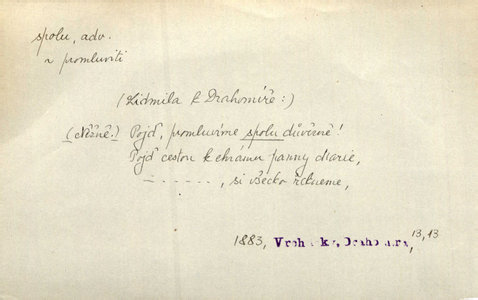 spolu, adv.
v promluviti
(Lidmila k Drahomíře:)
(Něžně.) Pojď, promluvíme spolu důvěrně!
Pojď cestou k chrámu panny Marie,
- - - - - - , si všecko řekneme,
1883, Vrchlický, Drahomíra, 13,13